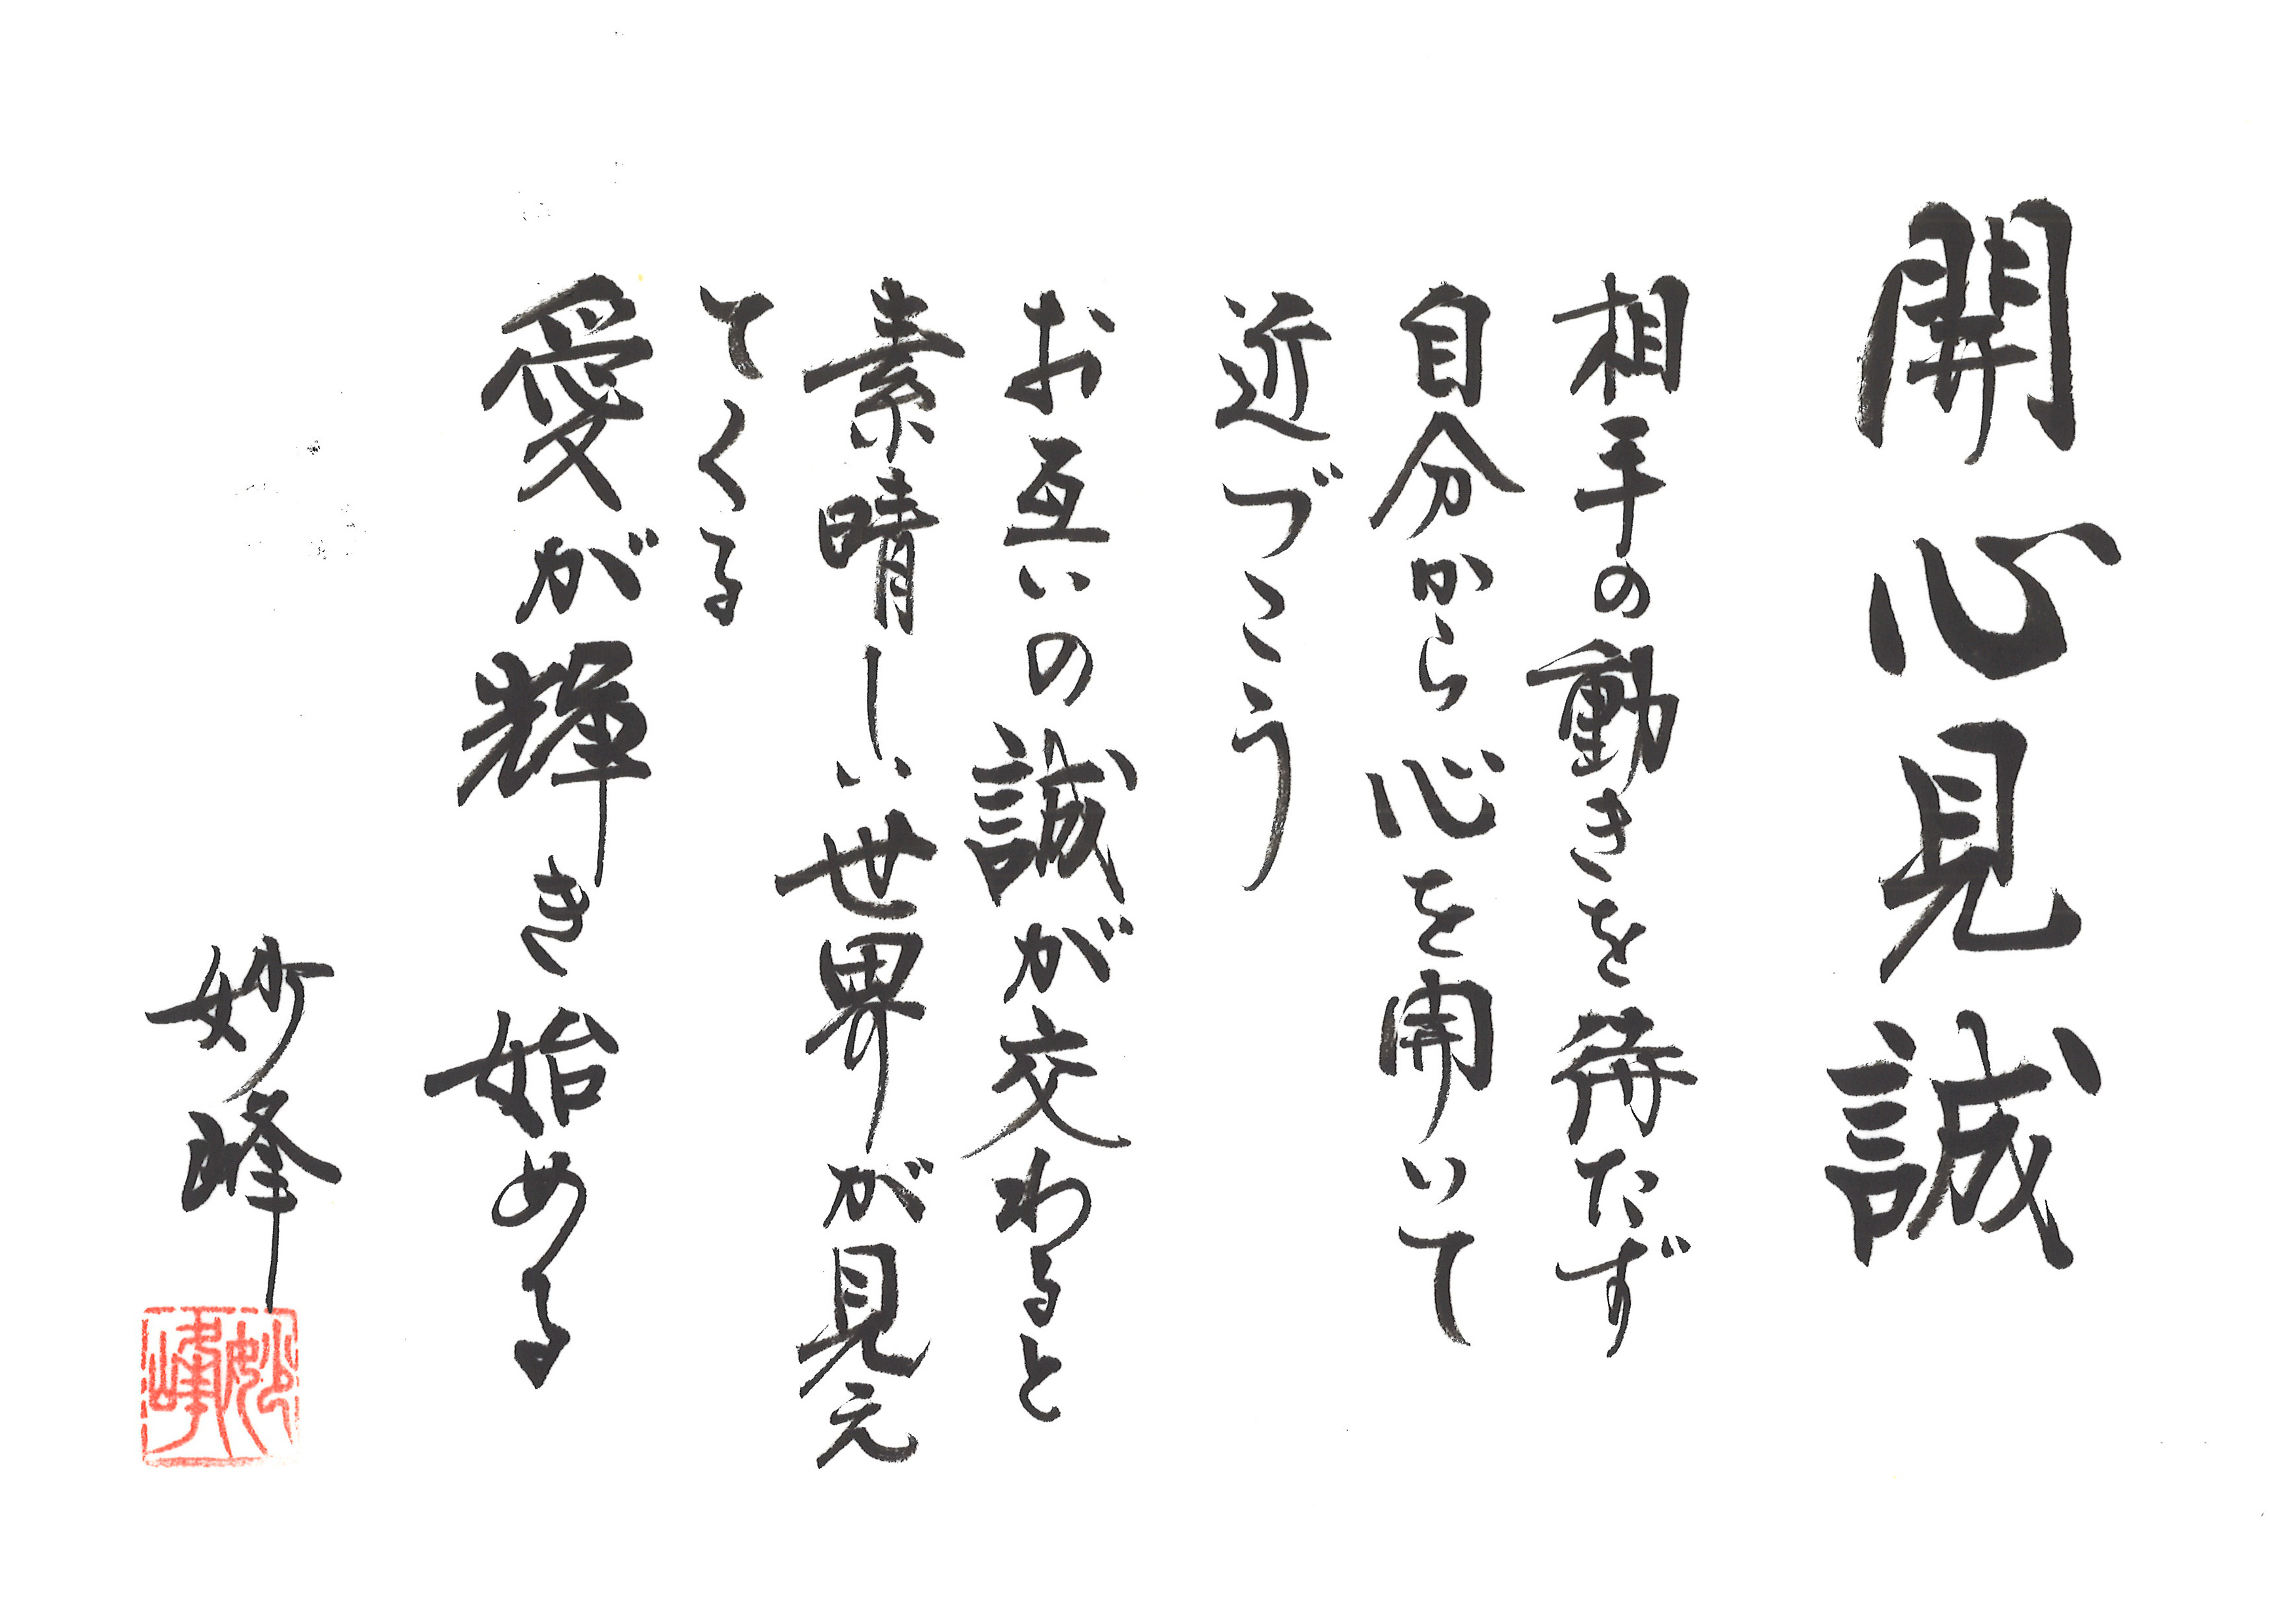 開心見誠
相手の動きを待たず
自分から心を開いて
近づこう
お互いの誠が交わると
素晴しい世界が見え
てくる
愛が輝き始める
妙峰
妙峰